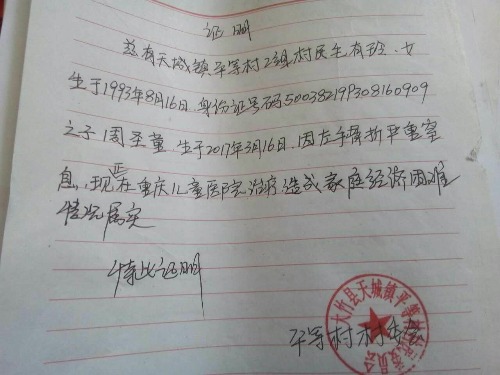 证明
兹有天城镇平等村2组村民毛有班、女
生于1993年8月16日.身份证号码500382199308160909
之子周圣童.生于2017年3月16日.因左手骨折严重窒
息,现正在重庆儿童医院治疗造成家庭经济困难
情况属实
特此证明
平等村村委会
大竹县天城镇平等村
委员会